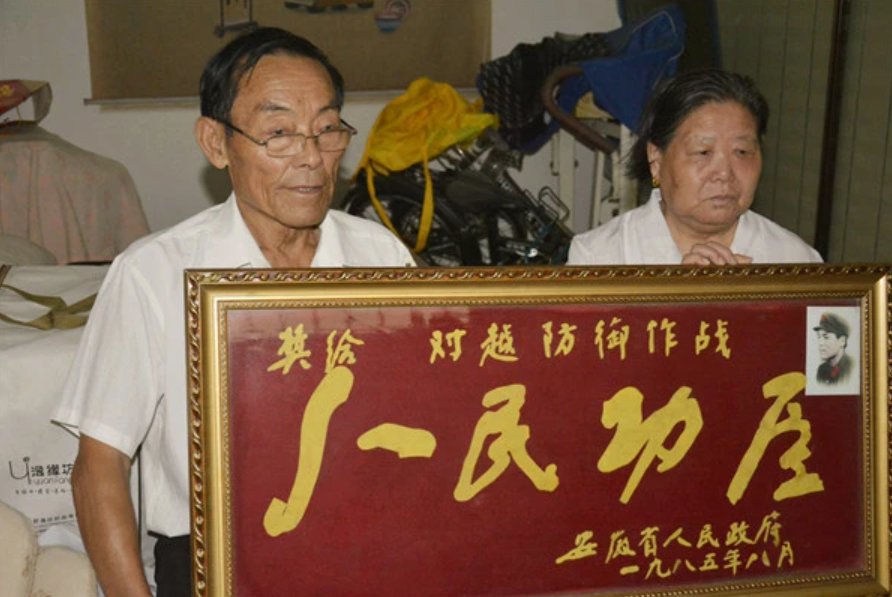 奖给 对越防御作战
人民功臣
安徽省人民政府
一九八五年八月
缘坊
yuanfang